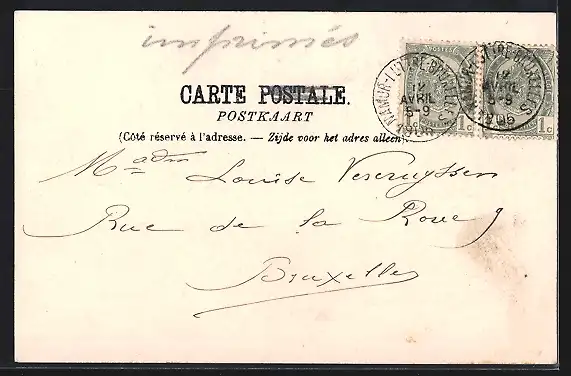 imprimés
CARTE POSTALE.
POSTKAART
(Côté réservé à l'adresse. — Zijde voor het adres alleen).
NAMUR-LUTTRE-BRUXELLES
12
AVRIL
5-9
1906
1c
1c
Madm Louise Vercruyssen
Rue de la Roue 9
Bruxelles